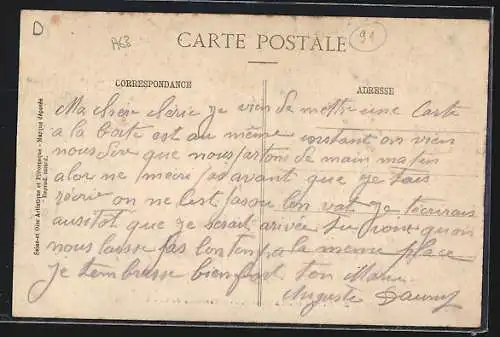 D
A63
91
CARTE POSTALE
CORRESPONDANCE
ADRESSE
Seine-et-Oise Artistique et Pittoresque - Marque déposée
Ma chère chérie je vien de mettre une Carte
a la boite est au même instant on vien
nous dire que nous partons demain matin
alor ne mecri pas avant que je tais
récrie on ne cest pas ou lon vat je técrirais
aussitot que je serait arrivée tu vois quon
nous laisse pas lontemp a la meme place
je tembrasse bien fort ton Mari
Auguste